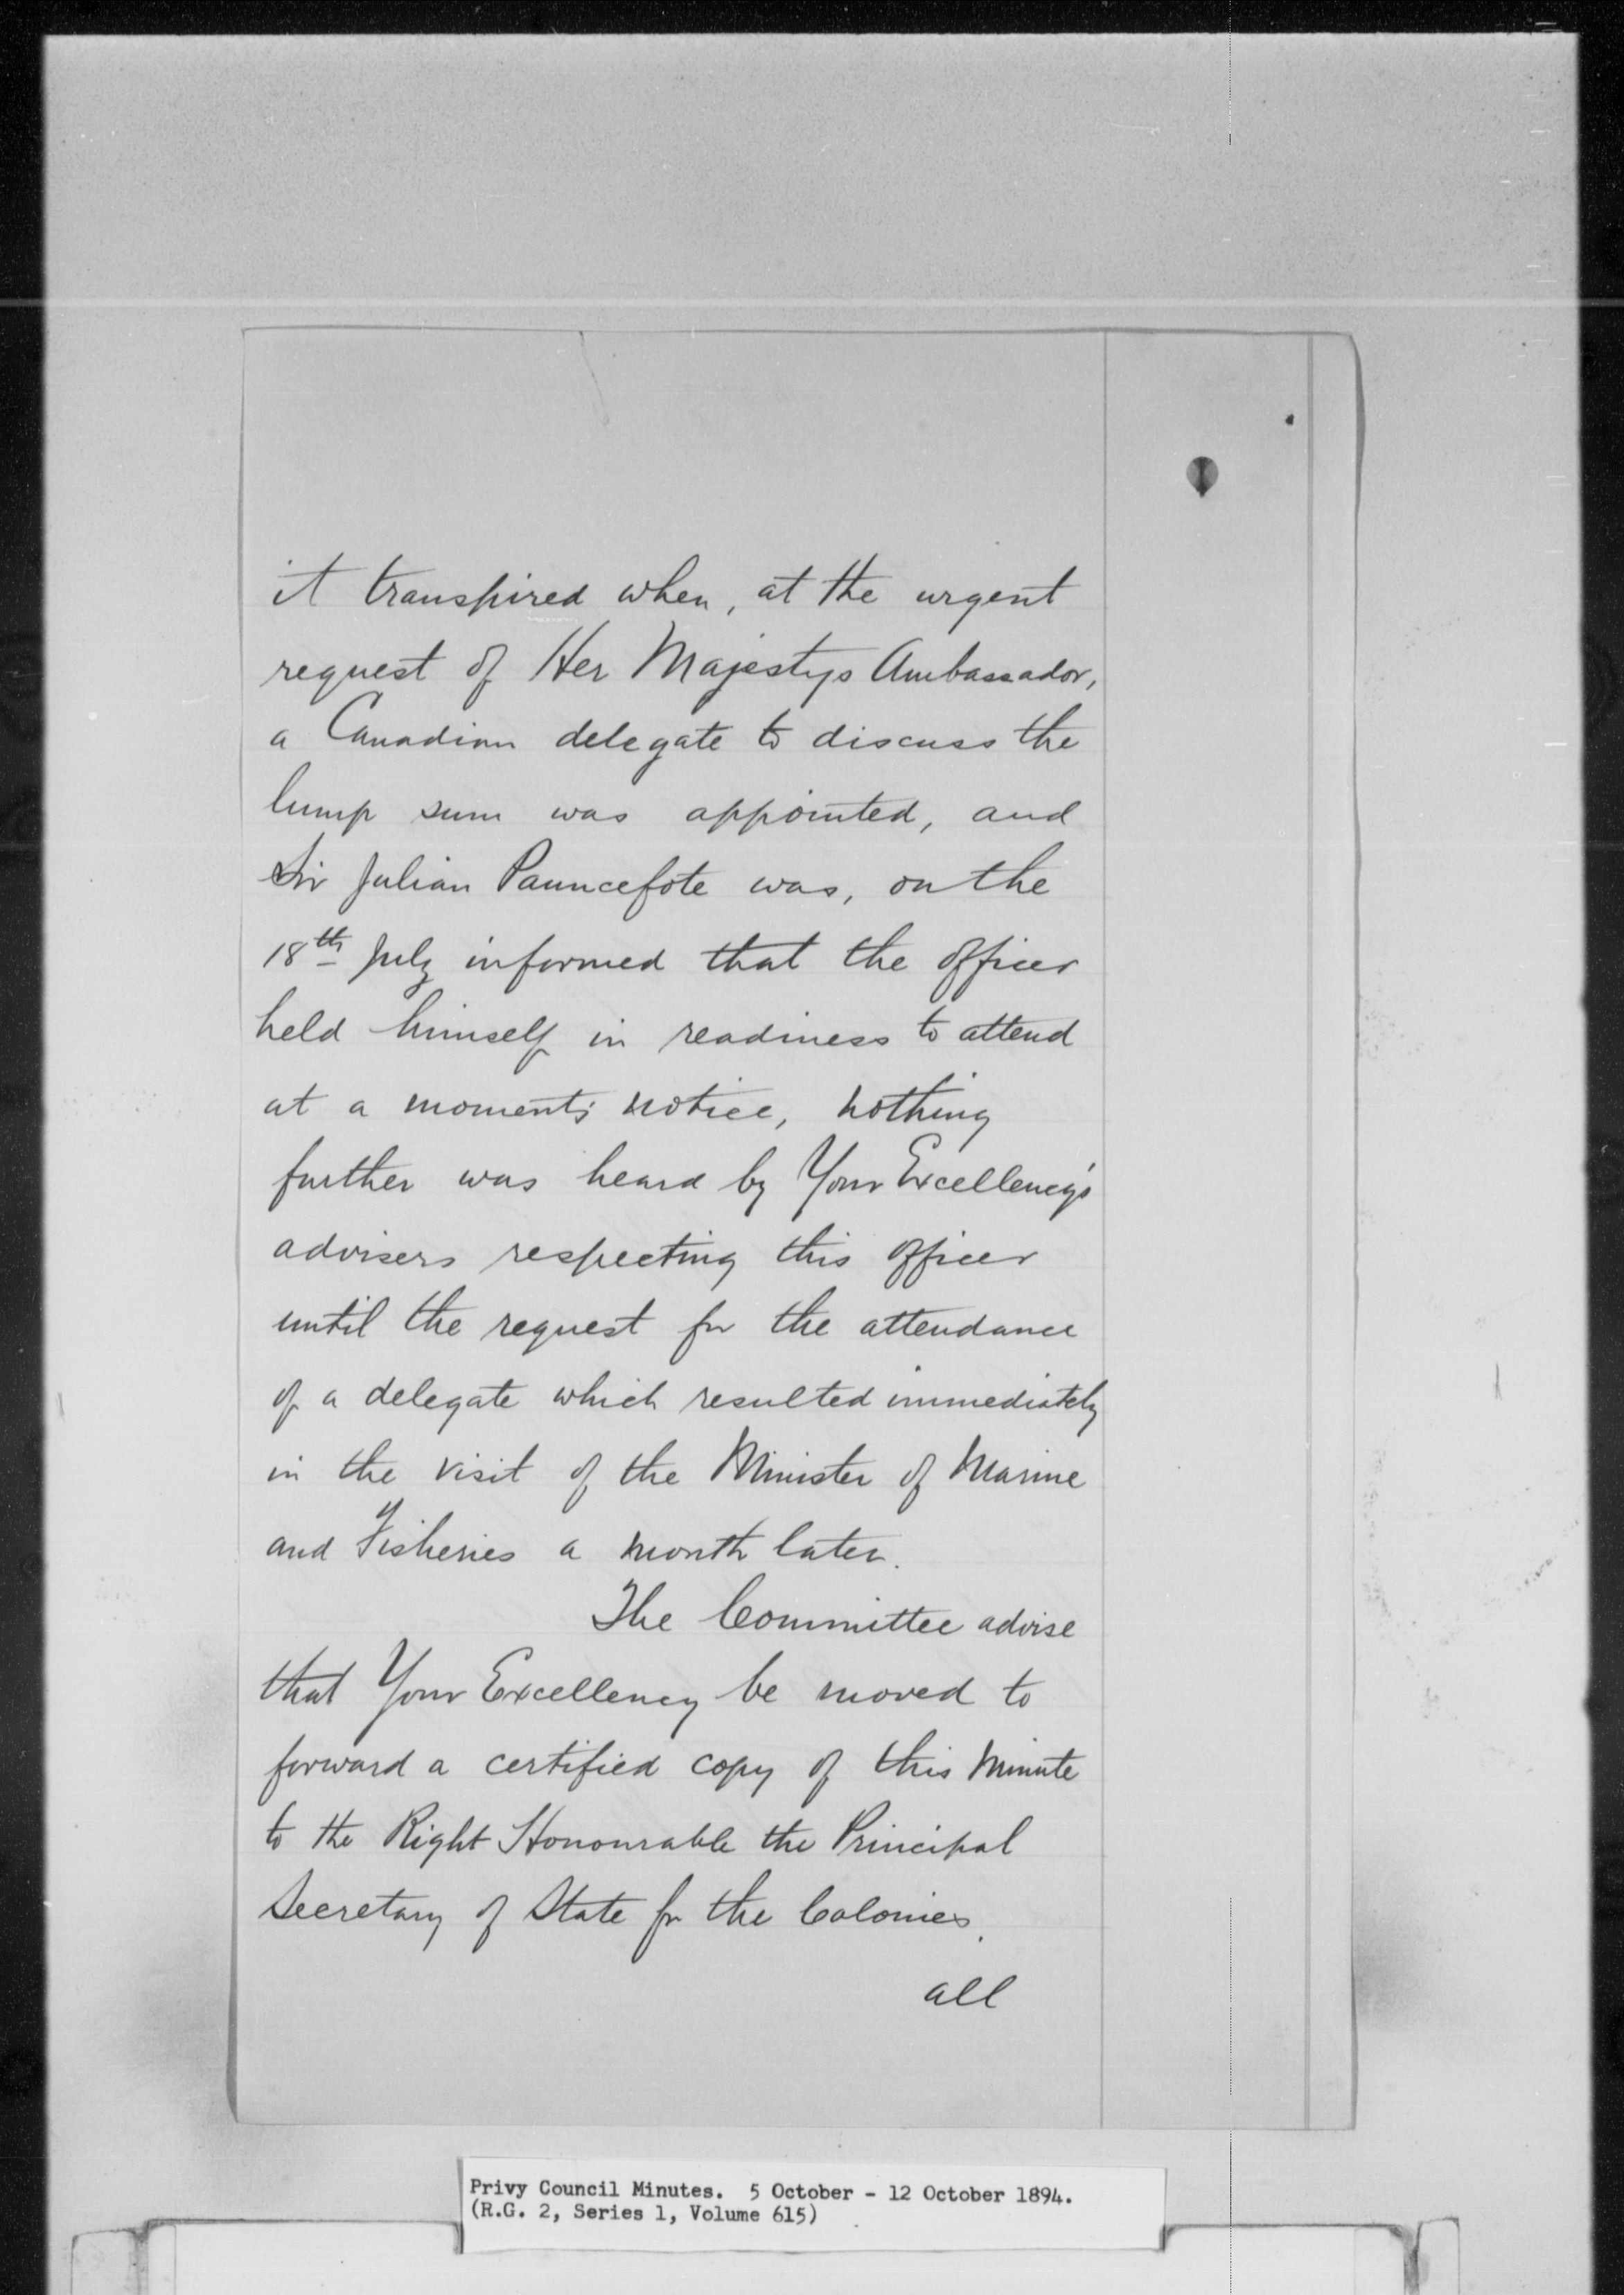 it transpired when, at the urgent
request of Her Majestys Ambassador,
a Canadian delegate to discuss the
lump sum was appointed, and
Sir Julian Pauncefote was, on the
18th July informed that the officer
held himself in readiness to attend
at a moments' notice, nothing
further was heard by Your Excellency's
advisers respecting this officer
until the request for the attendance
of a delegate which resulted immediately
in the visit of the Minister of Marine
and Fisheries a month later.
The Committee advise
that Your Excellency be moved to
forward a certified copy of this Minute
to the Right Honourable the Principal
Secretary of State for the Colonies.
all
Privy Council Minutes. 5 October - 12 October 1894.
(R.G. 2, Series 1, Volume 615)